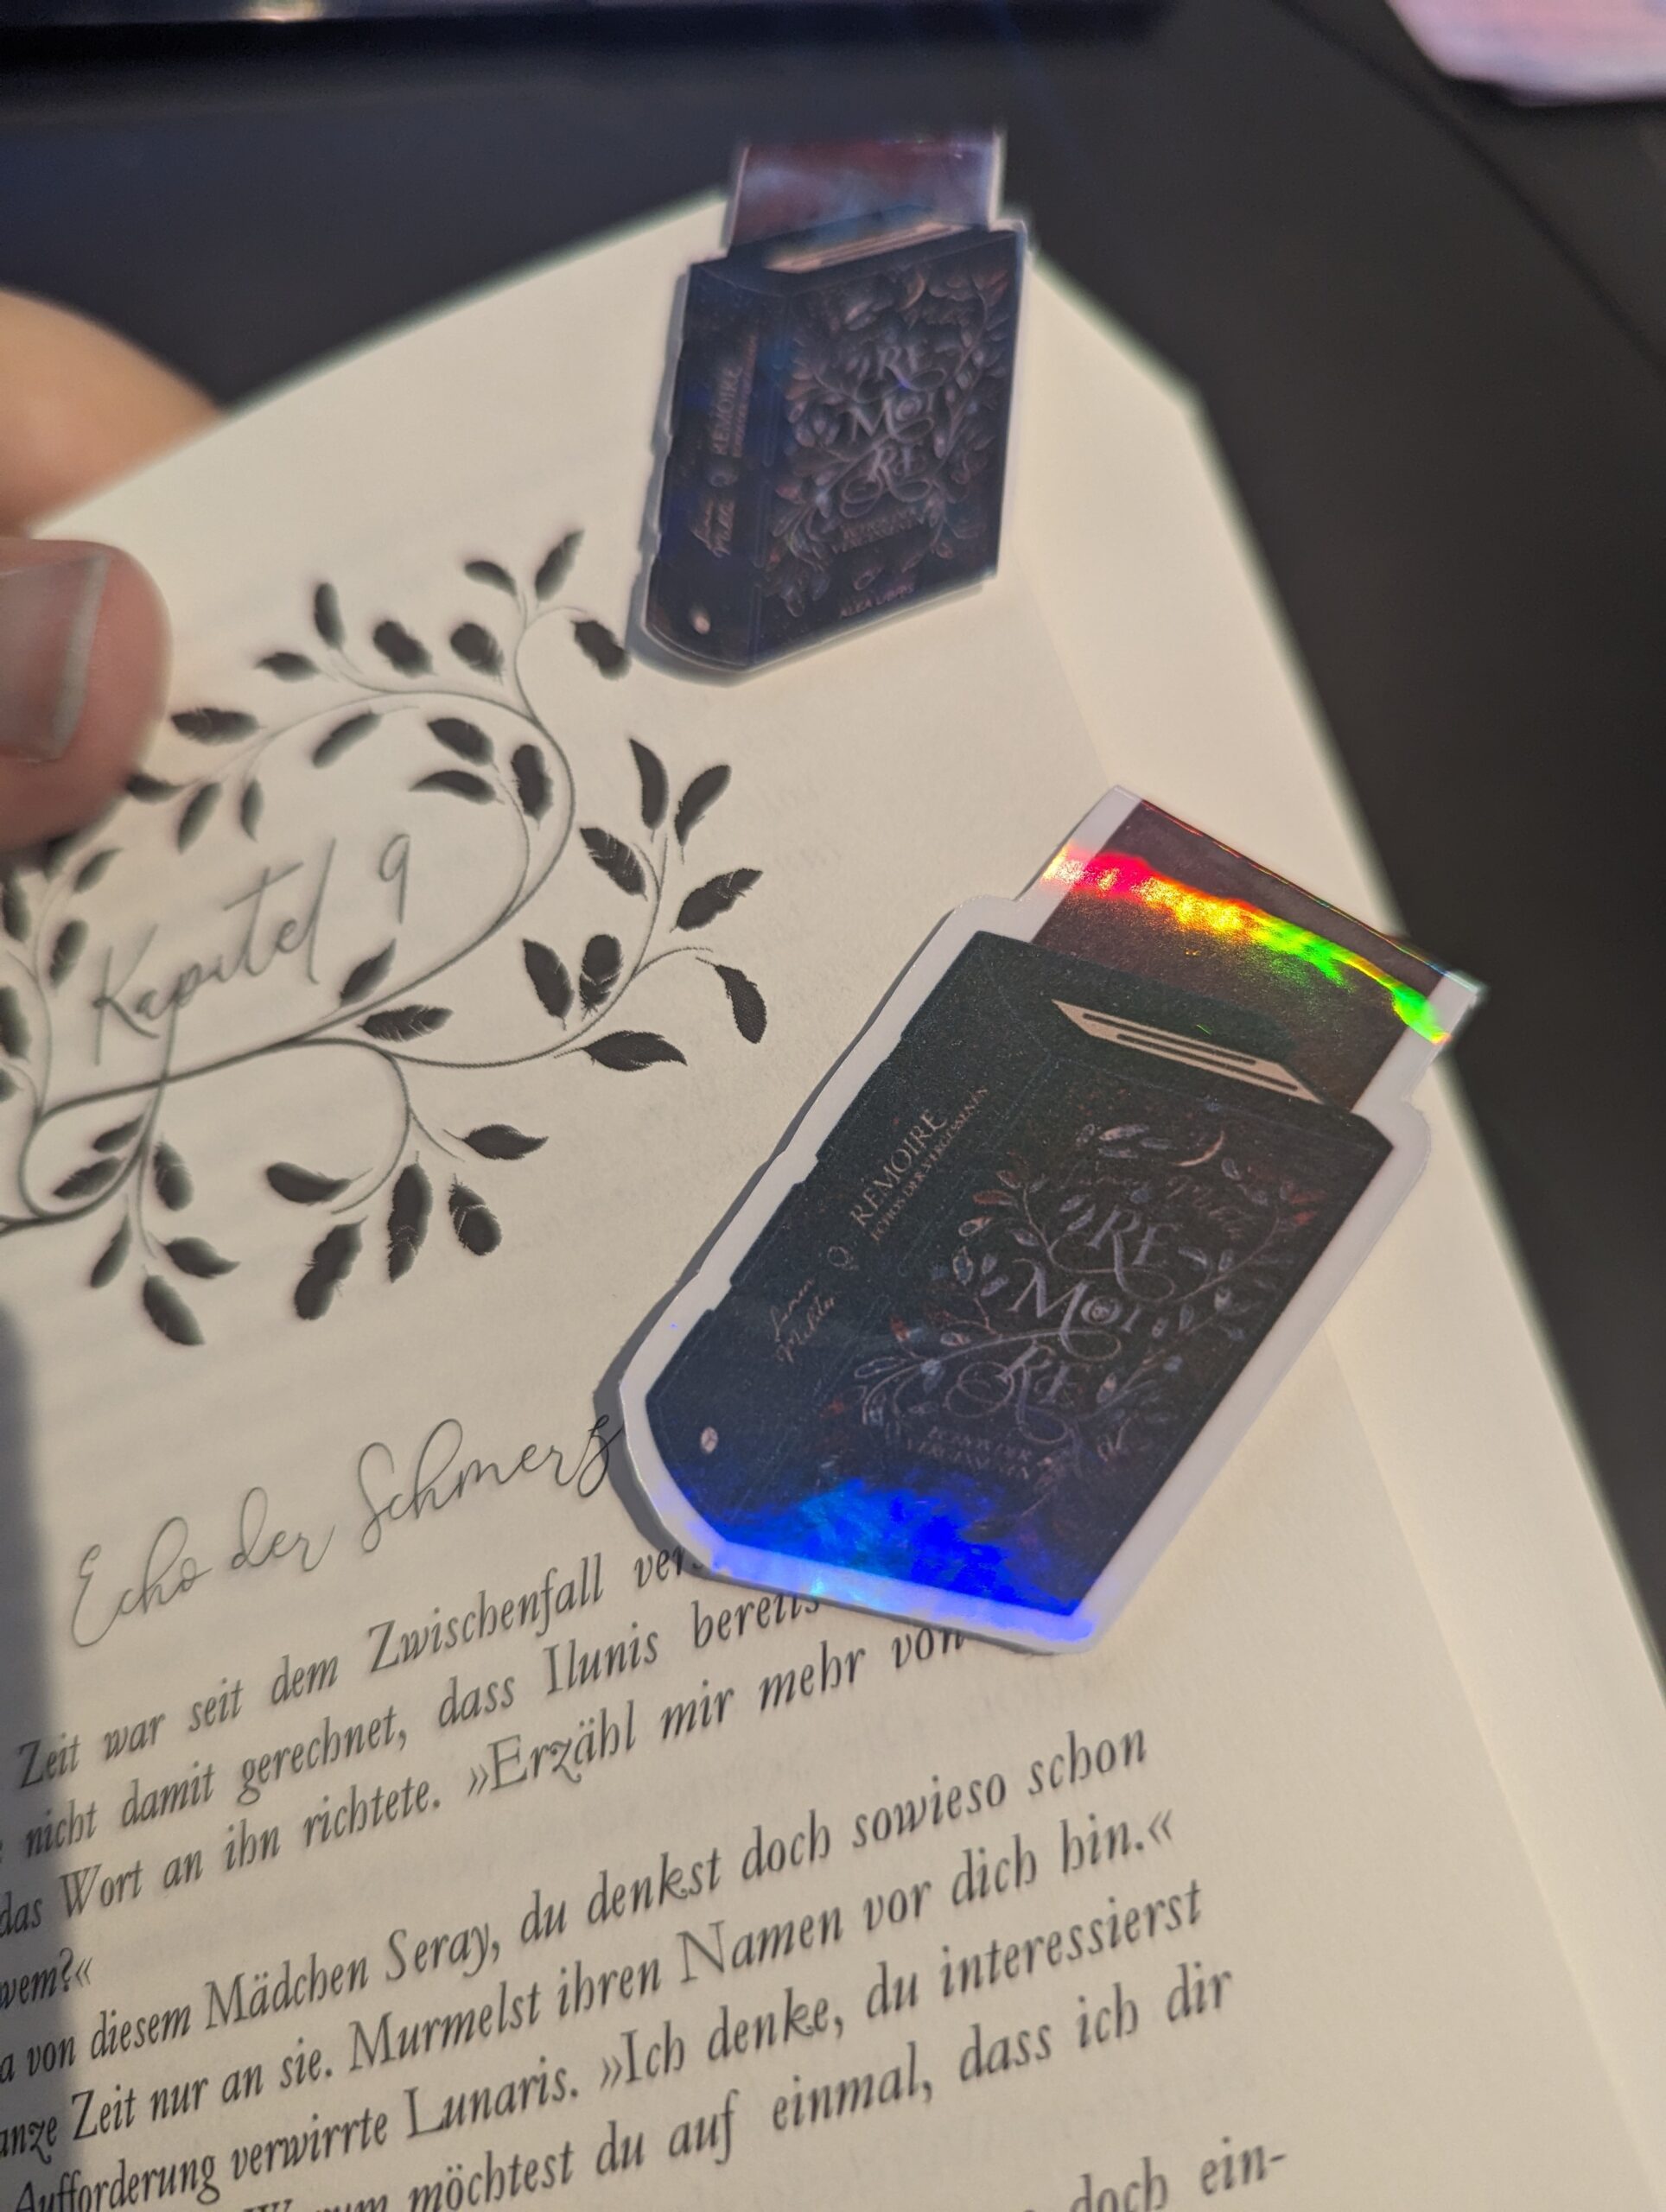 REMOIRE
RE
MOI
RE
ECHOS DER
VERGESSENEN
ALEA LIBRIS
Kapitel 9
REMOIRE
ECHOS DER VERGESSENEN
RE
MOI
RE
ECHOS DER
VERGESSENEN
Echo der Schmerz
Zeit war seit dem Zwischenfall ver
nicht damit gerechnet, dass Ilunis bereits
das Wort an ihn richtete. »Erzähl mir mehr von
wem?«
a von diesem Mädchen Seray, du denkst doch sowieso schon
anze Zeit nur an sie. Murmelst ihren Namen vor dich hin.«
Aufforderung verwirrte Lunaris. »Ich denke, du interessierst
möchtest du auf einmal, dass ich dir
doch ein-